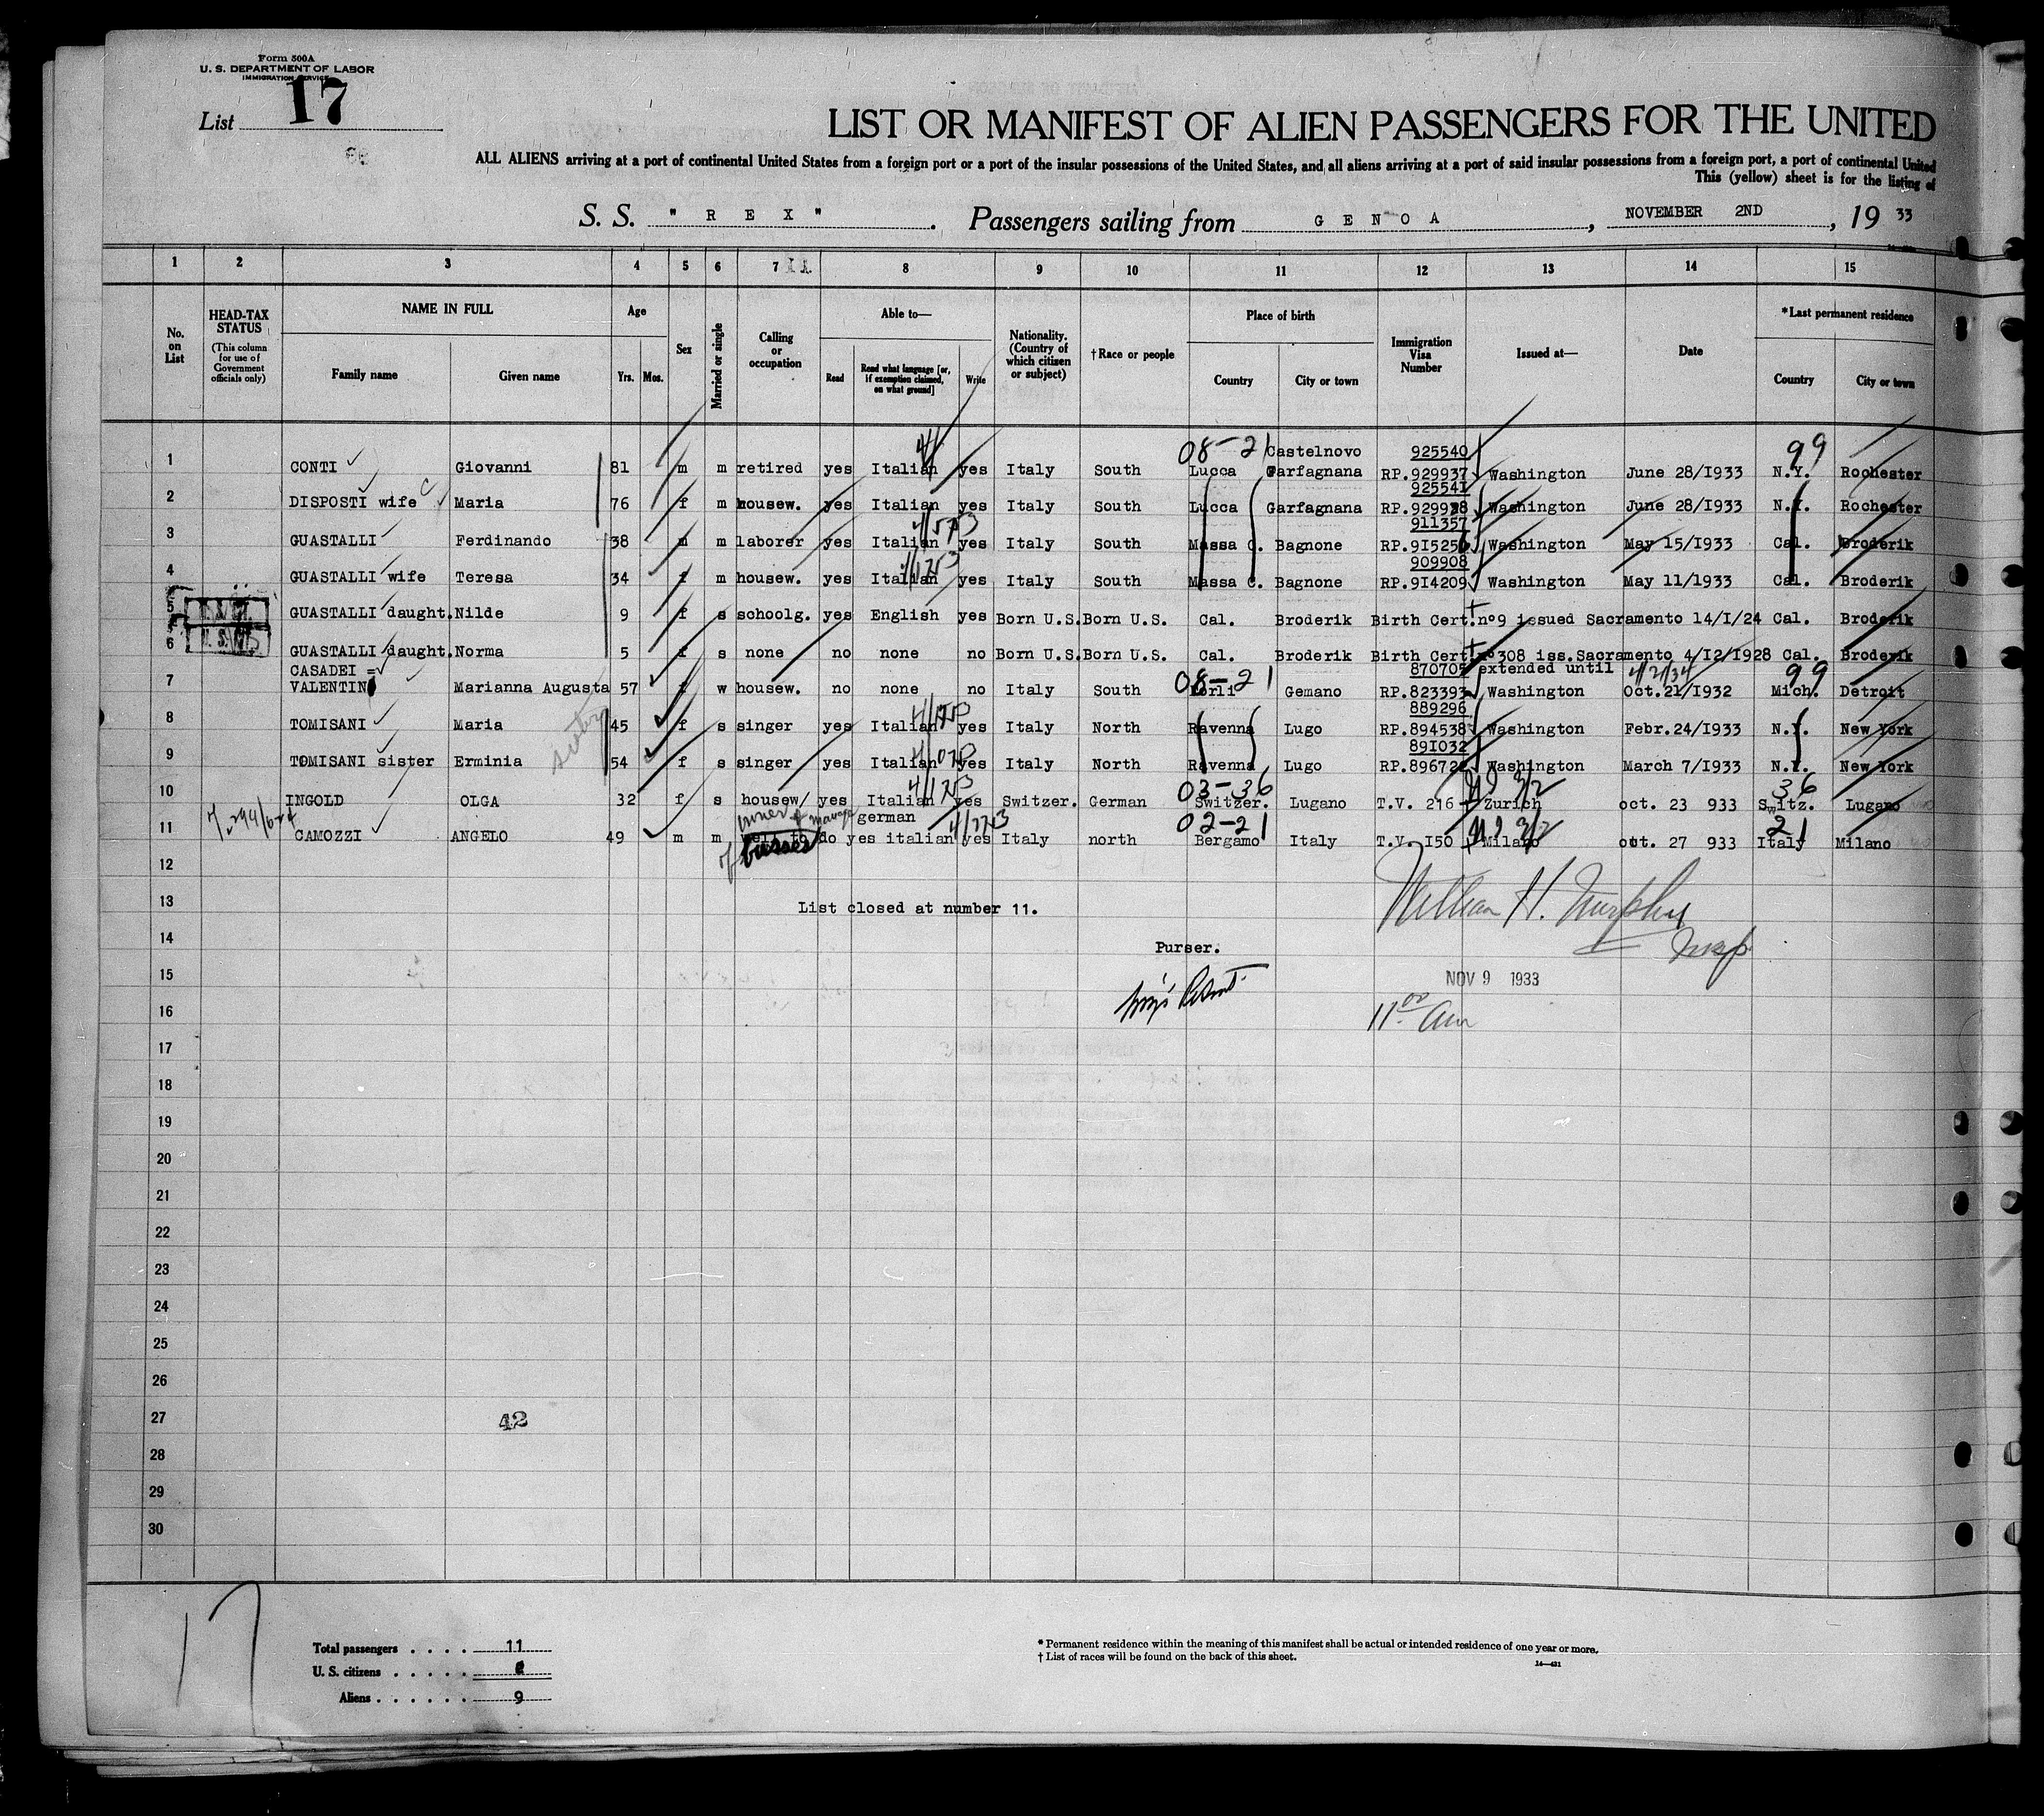 Form 500A
U. S. DEPARTMENT OF LABOR
IMMIGRATION SERVICE
List 17
LIST OR MANIFEST OF ALIEN PASSENGERS FOR THE UNITED
ALL ALIENS arriving at a port of continental United States from a foreign port or a port of the insular possessions of the United States, and all aliens arriving at a port of said insular possessions from a foreign port, a port of continental United
This (yellow) sheet is for the listing of
S. S. " R E X " . Passengers sailing from G E N O A , NOVEMBER 2ND , 19 33
1 2 3 4 5 6 7 11 8 9 10 11 12 13 14 15
No. on List
HEAD-TAX STATUS
(This column for use of Government officials only)
NAME IN FULL
Family name Given name
Age
Yrs. Mos.
Sex
Married or single
Calling or occupation
Able to—
Read
Read what language [or, if exemption claimed, on what ground]
Write
Nationality. (Country of which citizen or subject)
† Race or people
Place of birth
Country City or town
Immigration Visa Number
Issued at—
Date
* Last permanent residence
Country City or town
08-21 Castelnovo 925540 99
1 CONTI Giovanni 81 m m retired yes Italian yes Italy South Lucca Garfagnana RP.929937 Washington June 28/1933 N.Y. Rochester
925541
2 DISPOSTI wife Maria 76 f m housew. yes Italian yes Italy South Lucca Garfagnana RP.929938 Washington June 28/1933 N.Y. Rochester
911357
3 GUASTALLI Ferdinando 38 m m laborer yes Italian yes Italy South Massa C. Bagnone RP.915256 Washington May 15/1933 Cal. Broderik
909908
4 GUASTALLI wife Teresa 34 f m housew. yes Italian yes Italy South Massa C. Bagnone RP.914209 Washington May 11/1933 Cal. Broderik
5 GUASTALLI daught. Nilde 9 f s schoolg. yes English yes Born U.S. Born U.S. Cal. Broderik Birth Cert. nº9 issued Sacramento 14/I/24 Cal. Broderik
6 GUASTALLI daught. Norma 5 f s none no none no Born U.S. Born U.S. Cal. Broderik Birth Cert. nº308 iss. Sacramento 4/12/1928 Cal. Broderik
CASADEI = 08-21 870705 extended until 4/21/34 99
7 VALENTINI Marianna Augusta 57 f w housew. no none no Italy South Forli Gemano RP.823393 Washington Oct.21/1932 Mich. Detroit
889296
8 TOMISANI Maria 45 f s singer yes Italian yes Italy North Ravenna Lugo RP.894538 Washington Febr.24/1933 N.Y. New York
sister
891032
9 TOMISANI sister Erminia 54 f s singer yes Italian yes Italy North Ravenna Lugo Washington March 7/1933 N.Y. New York
03-36 36
10 INGOLD OLGA 32 f s housew/ yes Italian yes Switzer. German Switzer. Lugano T.V. 216 Zurich oct. 23 933 Switz. Lugano
german
owner & manager 02-21 21
11 CAMOZZI ANGELO 49 m m well to do yes italian yes Italy north Bergamo Italy T.V. 150 Milano oct. 27 933 Italy Milano
of busses
12
13 List closed at number 11.
William H. Murphy
14 Purser.
Insp
15 NOV 9 1933
16 11 00 am
17
18
19
20
21
22
23
24
25
26
27 42
28
29
30
17
Total passengers . . . . 11
U. S. citizens . . . . .
Aliens . . . . . . 9
* Permanent residence within the meaning of this manifest shall be actual or intended residence of one year or more.
† List of races will be found on the back of this sheet.
14—421